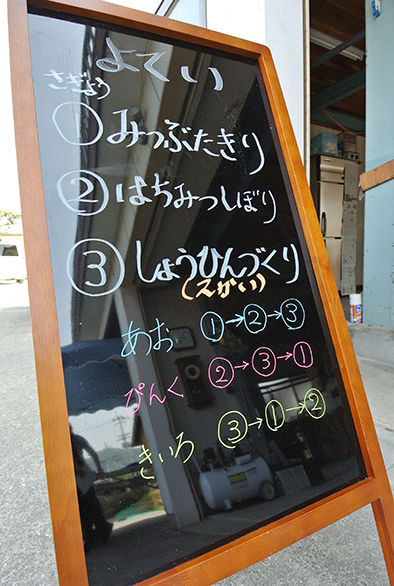 よてい
さぎょう
① みつぶたきり
② はちみつしぼり
③ しょうひんづくり
(2かい)
あお ①→②→③
ぴんく ②→③→①
きいろ ③→①→②